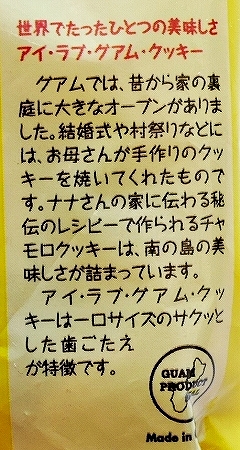 世界でたったひとつの美味しさ
アイ・ラブ・グアム・クッキー
グアムでは、昔から家の裏
庭に大きなオーブンがありま
した。結婚式や村祭りなどに
は、お母さんが手作りのクッ
キーを焼いてくれたもので
す。ナナさんの家に伝わる秘
伝のレシピーで作られるチャ
モロクッキーは、南の島の美
味しさが詰まっています。
アイ・ラブ・グアム・クッ
キーは一口サイズのサクッと
した歯ごたえ
が特徴です。
GUAM
PRODUCT
Made in